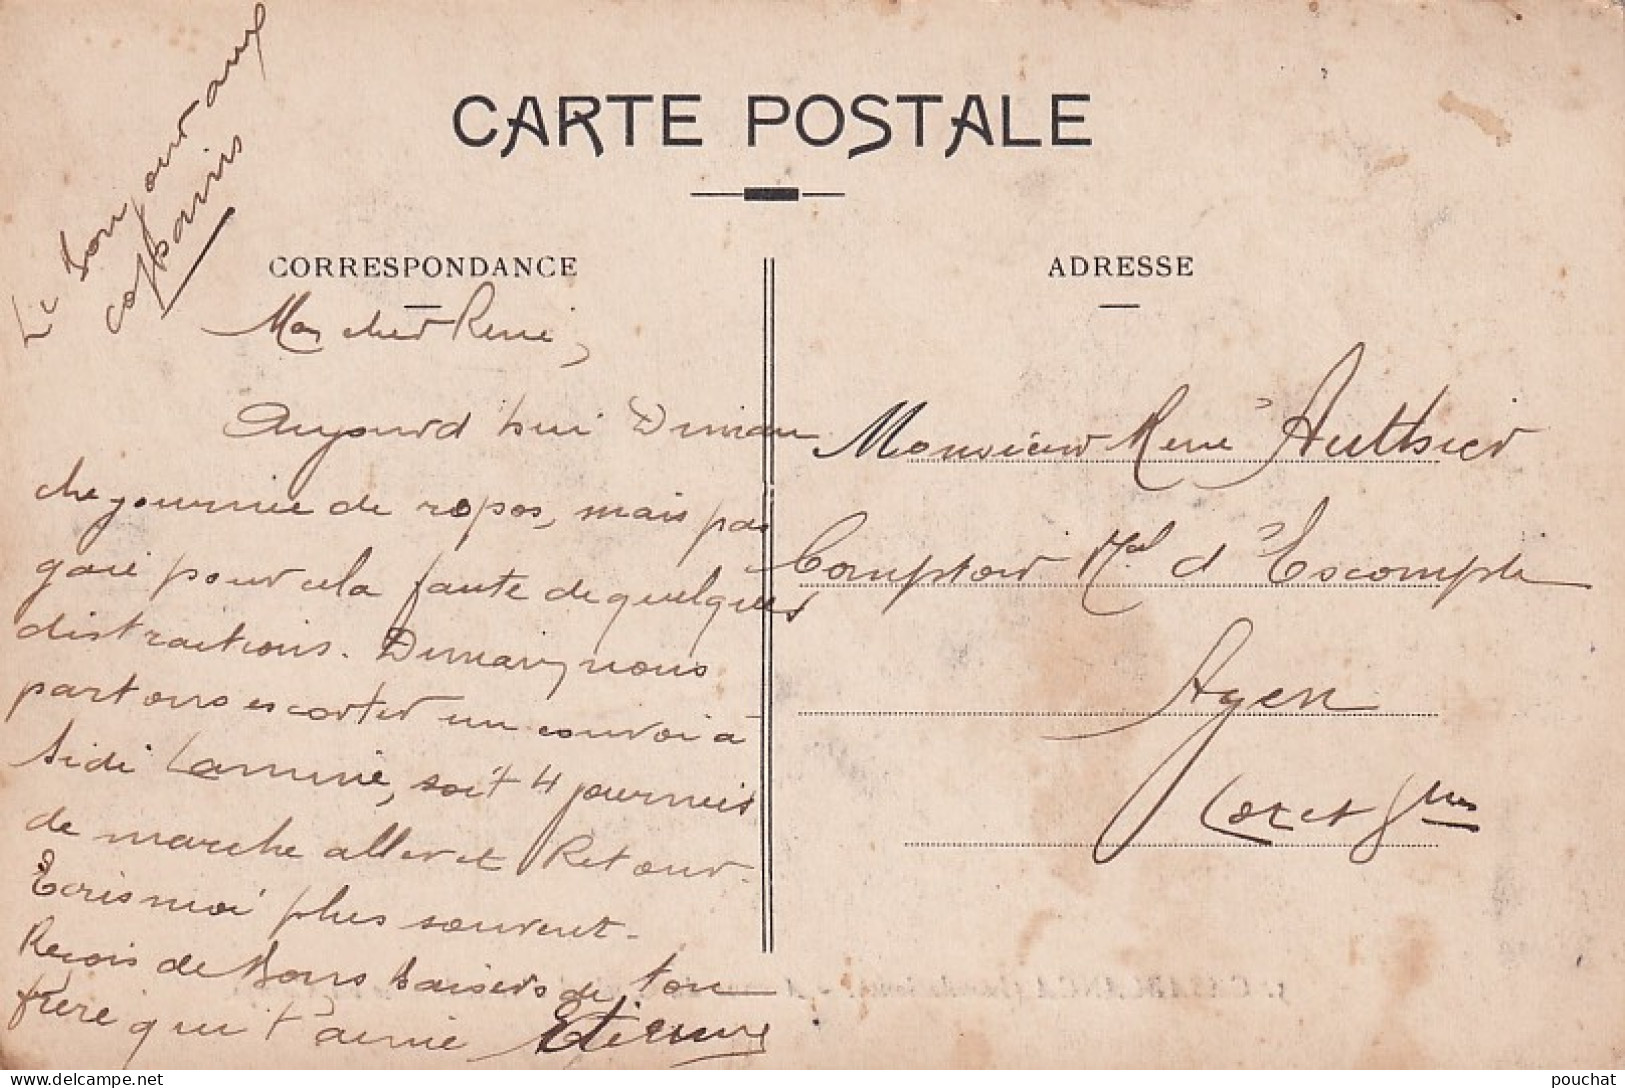 CARTE POSTALE
Le bonjour aux
copains
CORRESPONDANCE
Mon cher René,
Aujourd'hui Diman
che journée de repos, mais pas
gaie pour cela faute de quelques
distractions. Dimanche nous
partons escorter un convoi à
Sidi Lamine, soit 4 journées
de marche aller et Retour.
Ecris moi plus souvent.
Reçois de bons baisers de ton
frère qui t'aime Etienne
ADRESSE
Monsieur René Authier
Comptoir Nal d'Escompte
Agen
Lot et Gne
CASABLANCA
pouchat